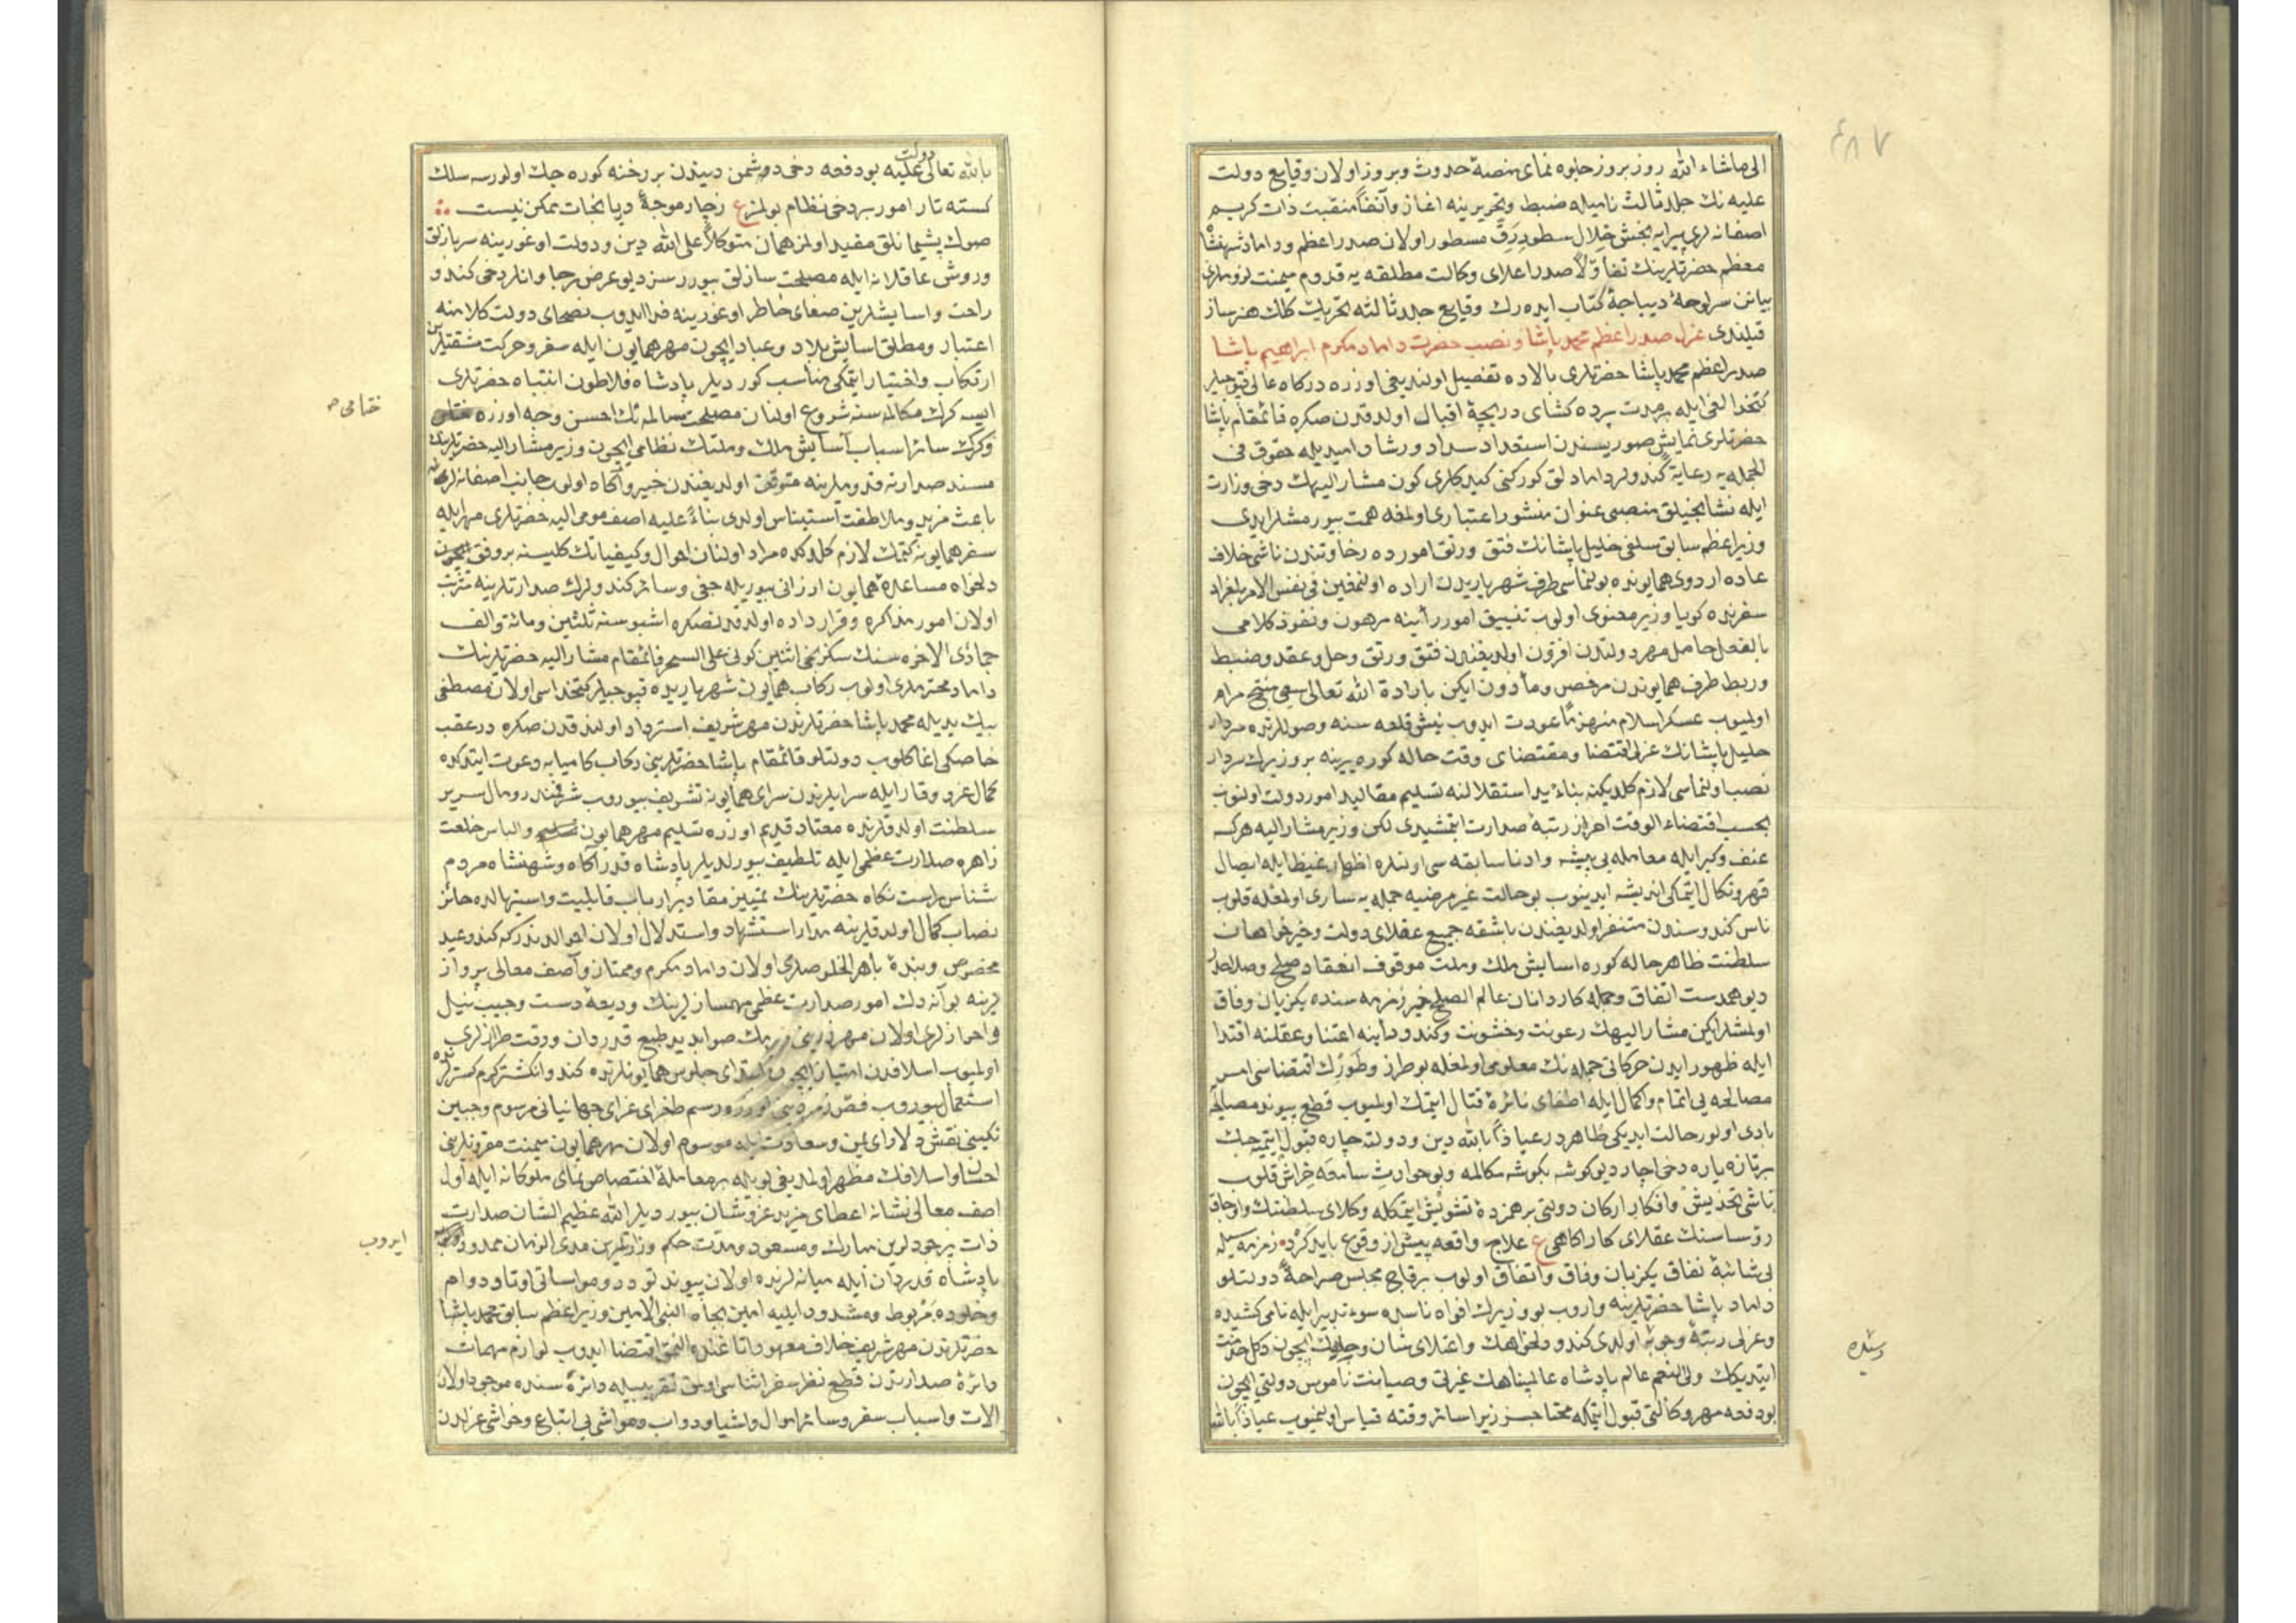 الى ماشاء الله روز بروز جلوه نمای منصۀ حدوث وبروز اولان وقایع دولت
علیه نك جلد ثالث نامیله ضبط وتحریرینه اغاز وآنفاً منقبت ذات کریم
اصفانه لری پیرایه بخش خلال سطور رق مسطور اولان صدر اعظم وداماد شهنشاه
معظم حضرتلرینك تفأ ولاً صدر اعلای وکالت مطلقه یه قدوم میمنت لزوملری
بیانن سرلوحۀ دیباجۀ کتاب ایده رك وقایع جلد ثالثه تحریك کلك هنر ساز
قیلندی عزل صدر اعظم محمد پاشا ونصب حضرت داماد مکرم ابراهیم پاشا
صدر اعظم محمد پاشا حضرتلری بالاده تفصیل اولندیغی اوزره درکاه عالی قپوجیلر
کتخدالغی ایله برمدت پرده کشای دریچۀ اقبال اولدقدن صکره قائمقام پاشا
حضرتلری نمایش صوریسندن استعداد سداد ورشاد امیدیله حقوق فی
الجمله یه رعایة کندولر دامادلق کورکنی کیدکلری کون مشار الیهك دخی وزارت
ایله نشانجیلق منصبی عنوان منشور اعتباری اولمغه همت بیورمشلر ایدی
وزیر اعظم سابق سلفی خلیل پاشانك فتق ورتق امورده رخاوتندن ناشی خلاف
عاده اردوی همایونده بولنماسی طرف شهریاریدن اراده اولنمغین فی نفس الامر بلغراد
سفرنده کویا وزیر معنوی اولوب تنسیق امور رأینه مرهون ونفوذ کلامی
بالفعل حامل مهر دولتدن افزون اولدیغندن فتق ورتق وحل وعقد وضبط
وربط طرف همایوندن مرخص ومأذون ایکن بارادة الله تعالی سعی منتج مرام
اولمیوب عسکر اسلام منهزماً عودت ایدوب نیش قلعه سنه وصوللرنده سردار
خلیل پاشانك عزلی اقتضا ومقتضای وقت حاله کوره یرینه بر وزیرك سردار
نصب اولنماسی لازم کلدیکنه بناءً ید استقلالنه تسلیم مقالید امور دولت اولنوب
بحسب اقتضاء الوقت احراز رتبۀ صدارت ایتمشیدی لکن وزیر مشار الیه هرکسه
عنف وکبر ایله معامله یی پیشه وادنا سابقه سی اولنلره اظهار غیظ ایله ایصال
قهر ونکال ایتمکی اندیشه ایدینوب بو حالت غیر مرضیه جمله یه ساری اولمغله قلوب
ناس کندوسندن متنفر اولدیغندن باشقه جمیع عقلای دولت وخیر خواهان
سلطنت ظاهر حاله کوره اسایش ملك وملت موقوف انعقاد صلح وصلاحدر
دیو همدست اتفاق وجمله کاردانان عالم الصلح خیر زمزمه سنده یکزبان وفاق
اولمشلر ایکن مشار الیهك رعونت وخشونت وکندو رأینه اعتنا وعقلنه اقتدا
ایله ظهور ایدن حرکاتی جمله نك معلومی اولمغله بو طرز وطورك اقتضاسی امر
مصالحه یی اتمام واکمال ایله اطفای نائرۀ قتال ایتمك اولمیوب قطع پیوند مصالحه
بادی اولور حالت ایدیکی ظاهردر عیاذاً بالله دین ودولته چاره قبول ایتمیه جك
برتازه یاره دخی اچار دیو کوشه بکوشه مکالمه وبو حوادث سامعه خراش قلوب
ناسی تخدیش وافکار ارکان دولتی بر همزدۀ تشویش ایتمکله وکلای سلطنتك واوجاق
رؤساسنك عقلای کار اکاهی ع علاج واقعه پیش از وقوع باید کرد زمزمه سیله
بی شائبۀ نفاق یکزبان وفاق واتفاق اولوب برقاچ مجلس صراحةً دولتلو
داماد پاشا حضرتلرینه واروب بو وزیرك افواه ناسده سوء تدبیر ایله نامی کشیده
وعزلی رتبۀ وجوبه اولدی کندو دلخواهك واعتلای شان وجاهك ایچون دکل خدمت
ایتدیکك ولی النعم عالم پادشاه عالمپناهك غیرتی وصیانت ناموس دولتی ایچون
بو دفعه مهر وکالتی قبول ایتمکه محتاجسز زیرا سائر وقته قیاس اولنمیوب عیاذاً بالله
رسیده
بالله تعالی دولت علیه بو دفعه دخی دوشمن دیندن بر رخنه کوره جك اولورسه سلك
کسسته تار امور بر دخی نظام بولمز ع زچار موجۀ دریا نجات ممکن نیست
صوك پشیمانلق مفید اولمز همان متوکلاً علی الله دین ودولت اوغورینه سربازلق
وروش عاقلانه ایله مصلحت سازلق بیوررسز دیو عرض رجا وانلر دخی کندو
راحت واسایشلرین صفای خاطر اوغورینه فدا ایدوب نصحای دولت کلامنه
اعتبار ومطلق اسایش بلاد وعباد ایچون مهر همایون ایله سفر وحرکت مشقتلرین
ارتکاب واختیار ایتمکی مناسب کوردیلر پادشاه فلاطون انتباه حضرتلری
ایسه کرك مکالمه سنه شروع اولنان مصلحت مسالمه نك احسن وجه اوزره
ختامی
وکرك سائر اسباب آسایش ملك وملتك نظامی ایچون وزیر مشار الیه حضرتلرینك
مسند صدارته قدوملرینه متوقف اولدیغندن خبیر واکاه اولوب جانب اصفانه لرینه
باعث مزید وملاطفت استیناس اولدی بناءً علیه اصف مومی الیه حضرتلری مهر ایله
سفر همایونه کتمك لازم کلدکده مراد اولنان احوال وکیفیاتك کلیسنه بر وفق
دلخواه مساعدۀ همایون ارزانی بیوریله جغی وسائر کندولرك صدارتلرینه مترتب
اولان امور مذاکره وقرار داده اولدقدنصکره اشبو سنه ثلثین ومائة والف
جماذی الاخره سنك سکزنجی اثنین کونی علی السحر قائمقام مشار الیه حضرتلرینك
داماد محترملری اولوب رکاب همایون شهریاریده قپوجیلر کتخداسی اولان مصطفی
بیك یدیله محمد پاشا حضرتلرندن مهر شریف استرداد اولندقدن صکره در عقب
خاصکی اغا کلوب دولتلو قائمقام پاشا حضرتلرینی رکاب کامیابه دعوت ایتدکده
کمال عز ووقار ایله سرایلرندن سرای همایونه تشریف بیوروب شرفمند رومال سریر
سلطنت اولدقلرنده معتاد قدیم اوزره تسلیم مهر همایون والباس خلعت
زاهره صدارت عظمی ایله تلطیف بیورلدیلر پادشاه قدر آکاه وشهنشاه مردم
شناس راست نکاه حضرتلرینك تمییز مقادیر ارباب قابلیت واستیهالده حائز
نصاب کمال اولدقلرینه مدار استشهاد واستدلال اولان احوالدندرکه کندو عبد
مخصوص وبندۀ باهر الخلوصلری اولان داماد مکرم وممتاز وآصف معالی پرواز
لرینه بو آنه دك امور صدارت عظمی مهمساز لرینك ودیعۀ دست وجیب نیل
واحرازلری اولان مهر صوابدید طبع قدردان ودقت طرازلری
اولمیوب اسلافدن امتیاز ایچون ابتدای جلوس همایونلرنده کندو انکشتر کرم کسترلرنده
استعمال بیوروب فص زمردینی اوزره رسم طغرای غرای جهانبانی مرسوم وجبین
نکینی نقش دلارای یمن وسعادت ایله موسوم اولان مهر همایون میمنت مقرونلرینی
احسان واسلافك مظهر اولمدیغی بویله بر معاملۀ اختصاص نمای ملوکانه ایله اول
اصف معالی نشانه اعطای مزید عز وشان بیوردیلر الله عظیم الشان صدارت
ذات پر جودلرین مبارك ومسعود ومدت حکم وزارتلرین مدی الزمان ممدود
ایدوب
پادشاه قدردان ایله میانه لرنده اولان پیوند تودد ومواساتی اوتاد دوام
وخلوده مربوط ومشدود ایلیه امین بجاه النبی الامین وزیر اعظم سابق محمد پاشا
حضرتلرندن مهر شریف خلاف معهود اقتضا ایدوب لوازم مهمات
دائرۀ صدارتدن قطع نظر سفر اثناسی اولمق تقریبیله دائرۀ سنده موجود اولان
الات واسباب سفر وسائر اموال واشیا ودواب ومواشی یی اتباع وخواشی عزلدن